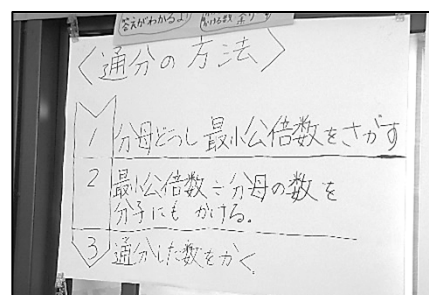 答えがわかるより
〈通分の方法〉
1 分母どうし最小公倍数をさがす
2 最小公倍数÷分母の数を
分子にもかける。
3 通分した数をかく。